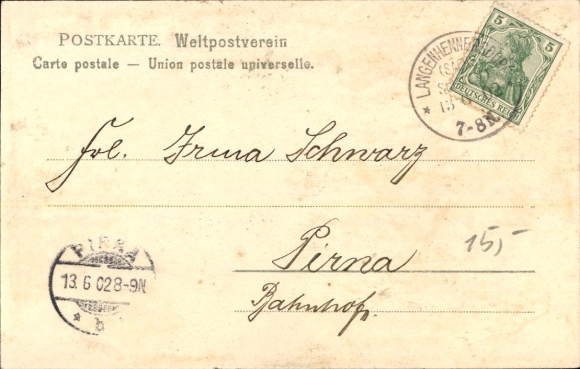 POSTKARTE. Weltpostverein
Carte postale — Union postale universelle.
5 5
DEUTSCHES REICH
7-8N.
Frl. Irma Schwarz
Pirna
Bahnhof.
15,-
PIRNA
13.6.02 8-9N
* b